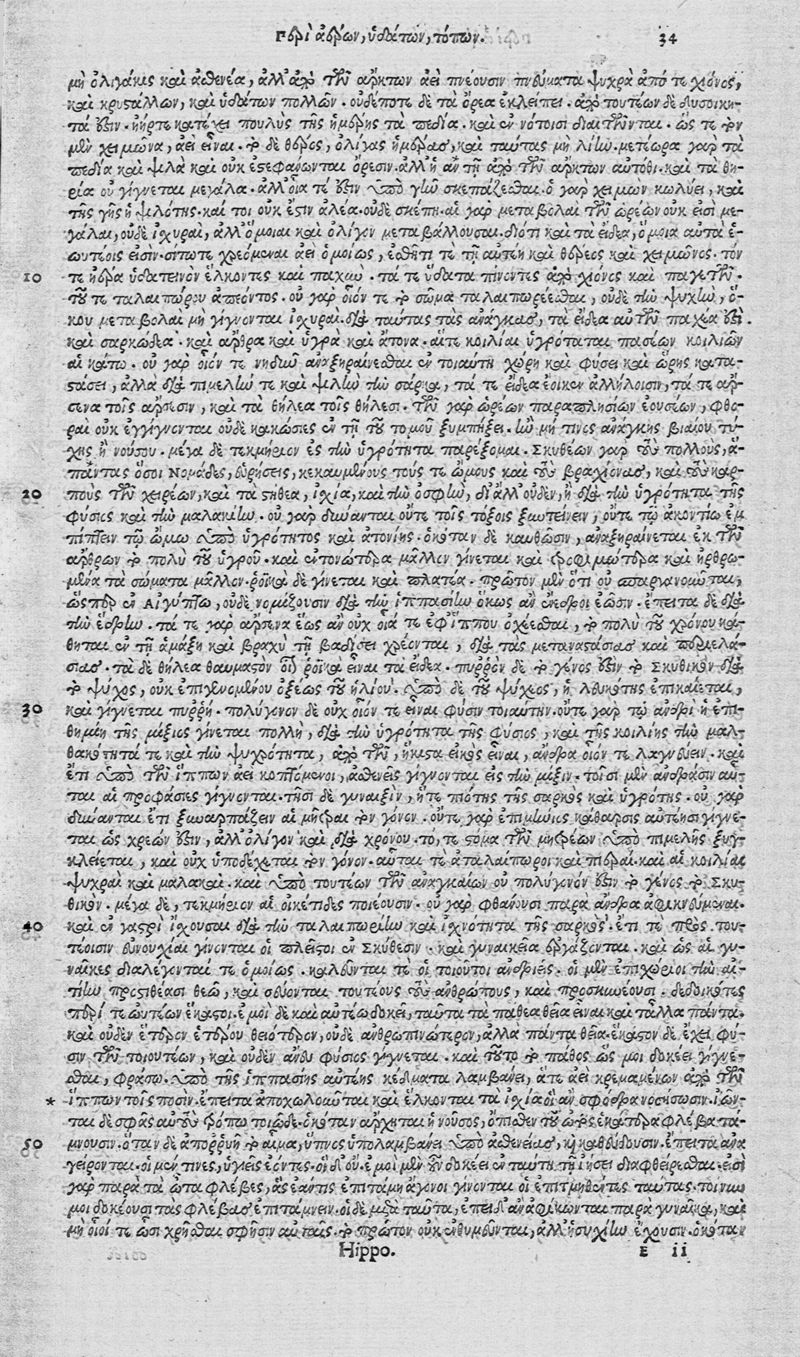 Περὶ ἀέρων, ὑδάτων, τόπων. 34
μὴ ὀλιγάκις καὶ ἀσθενέα, ἀλλ' ἀπὸ τῶν ἄρκτων ἀεὶ πνέουσιν πνεύματα ψυχρὰ ἀπό τε χιόνος,
καὶ κρυστάλλων, καὶ ὑδάτων πολλῶν. οὐδέποτε δὲ τὰ ὄρεα ἐκλείπει. ἀπὸ τουτέων δὲ δυσοίκη-
τά ἐστιν. ἠήρ τε κατέχει πουλὺς τῆς ἡμέρης τὰ πεδία. καὶ ἐν νότοισι διαιτῶνται. ὥς τε τὸν
μὲν χειμῶνα, ἀεὶ εἶναι. τὸ δὲ θέρος, ὀλίγας ἡμέρας, καὶ ταύτας μὴ λίην. μετέωρα γὰρ τὰ
πεδία καὶ ψιλὰ καὶ οὐκ ἐστεφάνωνται ὄρεσιν. ἀλλ' ἢ ἂν τῇ ἀπὸ τῶν ἄρκτων αὐτόθι. καὶ τὰ θη-
ρία οὐ γίγνεται μεγάλα. ἀλλ' οἷά τέ ἐστιν ὑπὸ γῆν σκεπάζεσθαι. ὁ γὰρ χειμὼν κωλύει, καὶ
τῆς γῆς ἡ ψιλότης. καί τοι οὐκ ἔστιν ἀλέα. οὐδὲ σκέπη. αἱ γὰρ μεταβολαὶ τῶν ὡρέων οὐκ εἰσὶ με-
γάλαι, οὐδὲ ἰσχυραὶ, ἀλλ' ὅμοιαι καὶ ὀλίγον μεταβάλλουσαι. διότι καὶ τὰ εἴδεα, ὅμοια αὐτὰ ἑ-
ωυτέοις εἰσιν. σίτῳ τε χρεόμεναι ἀεὶ ὁμοίως, ἐσθῆτί τε τῇ αὐτέῃ καὶ θέρεος καὶ χειμῶνος. τόν
10 τε ἠέρα ὑδατεινὸν ἕλκοντες καὶ παχὺν. τά τε ὕδατα πίνοντες ἀπὸ χιόνος καὶ παγετῶν.
τοῦ τε ταλαιπώρου ἀπεόντος. οὐ γὰρ οἷόν τε τὸ σῶμα ταλαιπωρέεσθαι, οὐδὲ τὴν ψυχὴν, ὅ-
κου μεταβολαὶ μὴ γίγνονται ἰσχυραὶ. διὰ ταύτας τὰς ἀνάγκας, τὰ εἴδεα αὐτῶν παχέα ἐστί.
καὶ σαρκώδεα. καὶ ἄρθρα καὶ ὑγρὰ καὶ ἄτονα. αἵ τε κοιλίαι ὑγρόταται πασέων κοιλιῶν
αἱ κάτω. οὐ γὰρ οἷόν τε νηδὺν ἀναξηραίνεσθαι ἐν τοιαύτῃ χώρῃ καὶ φύσει καὶ ὥρης κατα-
στάσει, ἀλλὰ διὰ πιμελήν τε καὶ ψιλὴν τὴν σάρκα, τά τε εἴδεα ἔοικεν ἀλλήλοισιν, τά τε ἄρ-
σενα τοῖς ἄρσεσιν, καὶ τὰ θήλεα τοῖς θήλεσι. τῶν γὰρ ὡρέων παραπλησίων ἐουσέων, φθο-
ραὶ οὐκ ἐγγίγνονται οὐδὲ κακώσιες ἐν τῇ τοῦ τόμου ξυμπήξει. ἢν μή τινος ἀνάγκης βιαίου τύ-
χῃς ἢ νούσου. μέγα δὲ τεκμήριον ἐς τὴν ὑγρότητα παρέξομαι. Σκυθέων γὰρ τοὺς πολλοὺς, ἅ-
παντας ὅσοι Νομάδες, εὑρήσεις, κεκαυμένους τούς τε ὤμους καὶ τοὺς βραχίονας, καὶ τοὺς καρ-
20 ποὺς τῶν χειρέων, καὶ τὰ στήθεα, ἰσχία, καὶ τὴν ὀσφὺν, δι' ἄλλ' οὐδὲν, ἢ διὰ τὴν ὑγρότητα τῆς
φύσιος καὶ τὴν μαλακίην. οὐ γὰρ δύνανται οὔτε τοῖς τόξοις ξυντείνειν, οὔτε τῷ ἀκοντίῳ ἐμ
πίπτειν τῷ ὤμῳ ὑπὸ ὑγρότητος καὶ ἀτονίης. ὁκόταν δὲ καυθῶσιν, ἀναξηραίνεται ἐκ τῶν
ἄρθρων τὸ πολὺ τοῦ ὑγροῦ. καὶ ἐντονώτερα μᾶλλον γίνεται καὶ τροφιμώτερα καὶ ἠρθρω-
μένα τὰ σώματα μᾶλλον. ῥοϊκὰ δὲ γίνεται καὶ πλατέα. πρῶτον μὲν ὅτι οὐ σπαργανοῦνται,
ὥσπερ ἐν Αἰγύπτῳ, οὐδὲ νομίζουσιν διὰ τὴν ἱππασίην ὅκως ἂν εὔεδροι ἔωσιν. ἔπειτα δὲ διὰ
τὴν ἕδρην. τά τε γὰρ ἄρσενα ἕως ἂν οὐχ οἷά τε ἐφ' ἵππου ὀχέεσθαι, τὸ πολὺ τοῦ χρόνου κά-
θηται ἐν τῇ ἁμάξῃ καὶ βραχὺ τῇ βαδίσει χρέονται, διὰ τὰς μεταναστάσιας καὶ περιελά-
σιας. τὰ δὲ θήλεα θαυμαστὸν οἷον ῥοϊκὰ εἶναι τὰ εἴδεα. πυῤῥὸν δὲ τὸ γένος ἐστὶν τὸ Σκυθικὸν διὰ
τὸ ψύχος, οὐκ ἐπιγενομένου ὀξέως τοῦ ἡλίου. ὑπὸ δὲ τοῦ ψύχεος, ἡ λευκότης ἐπικαίεται,
30 καὶ γίγνεται πυῤῥή. πολύγονον δὲ οὐχ οἷόν τε εἶναι φύσιν τοιαύτην. οὔτε γὰρ τῷ ἀνδρὶ ἡ ἐπι-
θημίη τῆς μίξιος γίνεται πολλὴ, διὰ τὴν ὑγρότητα τῆς φύσιος, καὶ τῆς κοιλίης τὴν μαλ-
θακότητά τε καὶ τὴν ψυχρότητα, ἀπὸ τῶν, ἥκιστα εἰκὸς εἶναι, ἄνδρα οἷόν τε λαγνεύειν. καὶ
ἔτι ὑπὸ τῶν ἵππων ἀεὶ κοπτόμενοι, ἀσθενεῖς γίγνονται εἰς τὴν μίξιν. τοῖσι μὲν ἀνδράσιν αὗ-
ται αἱ προφάσιες γίγνονται. τῇσι δὲ γυναιξὶν, ἥ τε πιότης τῆς σαρκὸς καὶ ὑγρότης. οὐ γὰρ
δύνανται ἔτι ξυναρπάζειν αἱ μῆτραι τὸν γόνον. οὔτε γὰρ ἐπιμήνιος κάθαρσις αὐτέῃσι γίγνε-
ται ὡς χρεών ἐστιν, ἀλλ' ὀλίγον καὶ διὰ χρόνου. τό, τε στόμα τῶν μητρέων ὑπὸ πιμελῆς ξυγ-
κλείεται, καὶ οὐχ ὑποδέχεται τὸν γόνον. αὗταί τε ἀταλαίπωροι καὶ πίεραι. καὶ αἱ κοιλίαι
ψυχραὶ καὶ μαλακαί. καὶ ὑπὸ τουτέων τῶν ἀναγκαίων οὐ πολύγονόν ἐστιν τὸ γένος τὸ Σκυ-
θικὸν. μέγα δὲ, τεκμήριον αἱ οἰκέτιδες ποιέουσιν. οὐ γὰρ φθάνουσι παρὰ ἄνδρα ἀφικνεύμεναι.
40 καὶ ἐν γαστρὶ ἴσχουσαι διὰ τὴν ταλαιπωρίην καὶ ἰσχνότητα τῆς σαρκὸς. ἔτι τε πρὸς του-
τέοισιν εὐνουχίαι γίνονται οἱ πλεῖστοι ἐν Σκύθῃσιν. καὶ γυναικεῖα ἐργάζονται. καὶ ὡς αἱ γυ-
ναῖκες διαλέγονταί τε ὁμοίως. καλεῦνταί τε οἱ τοιοῦτοι ἀνδριές. οἱ μὲν ἐπιχώριοι τὴν αἰ-
τίην προστιθέασι θεῷ, καὶ σέβονται τουτέους τοὺς ἀνθρώπους, καὶ προσκυνέουσι. δεδοικότες
περί τε ωὐτέων ἕκαστοι. ἐμοὶ δὲ καὶ αὐτέῳ δοκεῖ, ταῦτα τὰ πάθεα θεῖα εἶναι καὶ τἆλλα πάντα.
καὶ οὐδὲν ἕτερον ἑτέρου θειότερον, οὐδὲ ἀνθρωπινώτερον, ἀλλὰ πάντα θεῖα. ἕκαστον δὲ ἔχει φύ-
σιν τῶν τοιουτέων, καὶ οὐδὲν ἄνευ φύσιος γίγνεται. καὶ τοῦτο τὸ πάθος ὥς μοι δοκέει γίγνε-
σθαι, φράσω. ὑπὸ τῆς ἱππασίης αὐτέης κέδματα λαμβάνει, ἅτε ἀεὶ κρεμαμένων ἀπὸ τῶν
* ἵππων τοῖς ποσὶν. ἔπειτα ἀποχωλοῦνται καὶ ἕλκονται τὰ ἰσχία οἳ ἂν σφόδρα νοσήσωσιν. ἰῶν-
ται δὲ σφᾶς αὐτοὺς τρόπῳ τοιῷδε. ὁκόταν ἄρχηται ἡ νοῦσος, ὄπισθεν τοῦ ὠτὸς ἑκατέρα φλέβα τά-
50 μνουσιν. ὅταν δὲ ἀποῤῥυῇ τὸ αἷμα, ὕπνος ὑπολαμβάνει ὑπὸ ἀσθενείας, καὶ καθεύδουσιν. ἔπειτα ἀνε
γείρονται. οἱ μέν τινες, ὑγιεῖς ἐόντες. οἱ δ' οὔ. ἐμοὶ μὲν οὖν δοκέει ἐν ταύτῃ τῇ ἰήσει διαφθείρεσθαι. εἰσὶ
γὰρ παρὰ τὰ ὦτα φλέβες, ἃς ἐάν τις ἐπιτάμῃ ἄγονοι γίνονται οἱ ἐπιτμηθέντες. ταύτας τοίνυν
μοι δοκέουσι τὰς φλέβας ἐπιτάμνειν. οἱ δὲ μετὰ ταῦτα, ἐπειδὰν ἀφίκωνται παρὰ γυναῖκα, καὶ
μὴ οἷοί τε ὦσι χρῆσθαι σφῇσιν αὐταῖς. τὸ πρῶτον οὐκ ἐνθυμεῦνται, ἀλλ' ἡσυχίην ἔχουσιν. ὁκόταν
Hippo. E ii